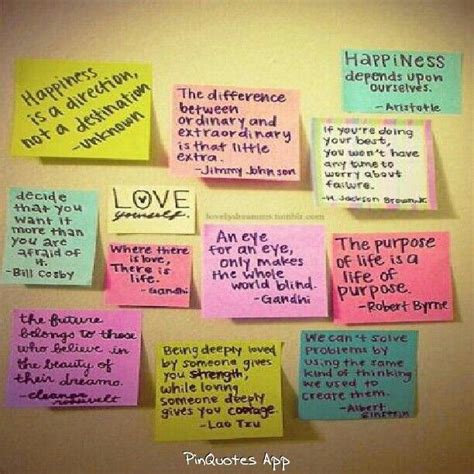 Happiness
is a direction,
not a destination
-unknown
The difference
between
ordinary and
extraordinary
is that little
extra.
-Jimmy Johnson
HAPPINESS
depends upon
ourselves.
-Aristotle
If you're doing
your best,
you won't have
any time to
worry about
failure.
-H. Jackson Brown Jr.
decide
that you
want it
more than
you are
afraid of
it.
-Bill Cosby
LOVE
yourself.
lovelydreamms.tumblr.com
Where there
is love,
There is
life.
-Gandhi
An eye
for an eye,
only makes
the whole
world blind.
-Gandhi
The purpose
of life is a
life of
purpose.
-Robert Byrne
the future
belongs to those
who believe in
the beauty of
their dreams.
-eleanor roosevelt
Being deeply loved
by someone gives
you strength,
while loving
someone deeply
gives you courage.
-Lao Tzu
We can't solve
problems by
using the same
kind of thinking
we used to
create them.
-Albert
Einstein
PinQuotes App